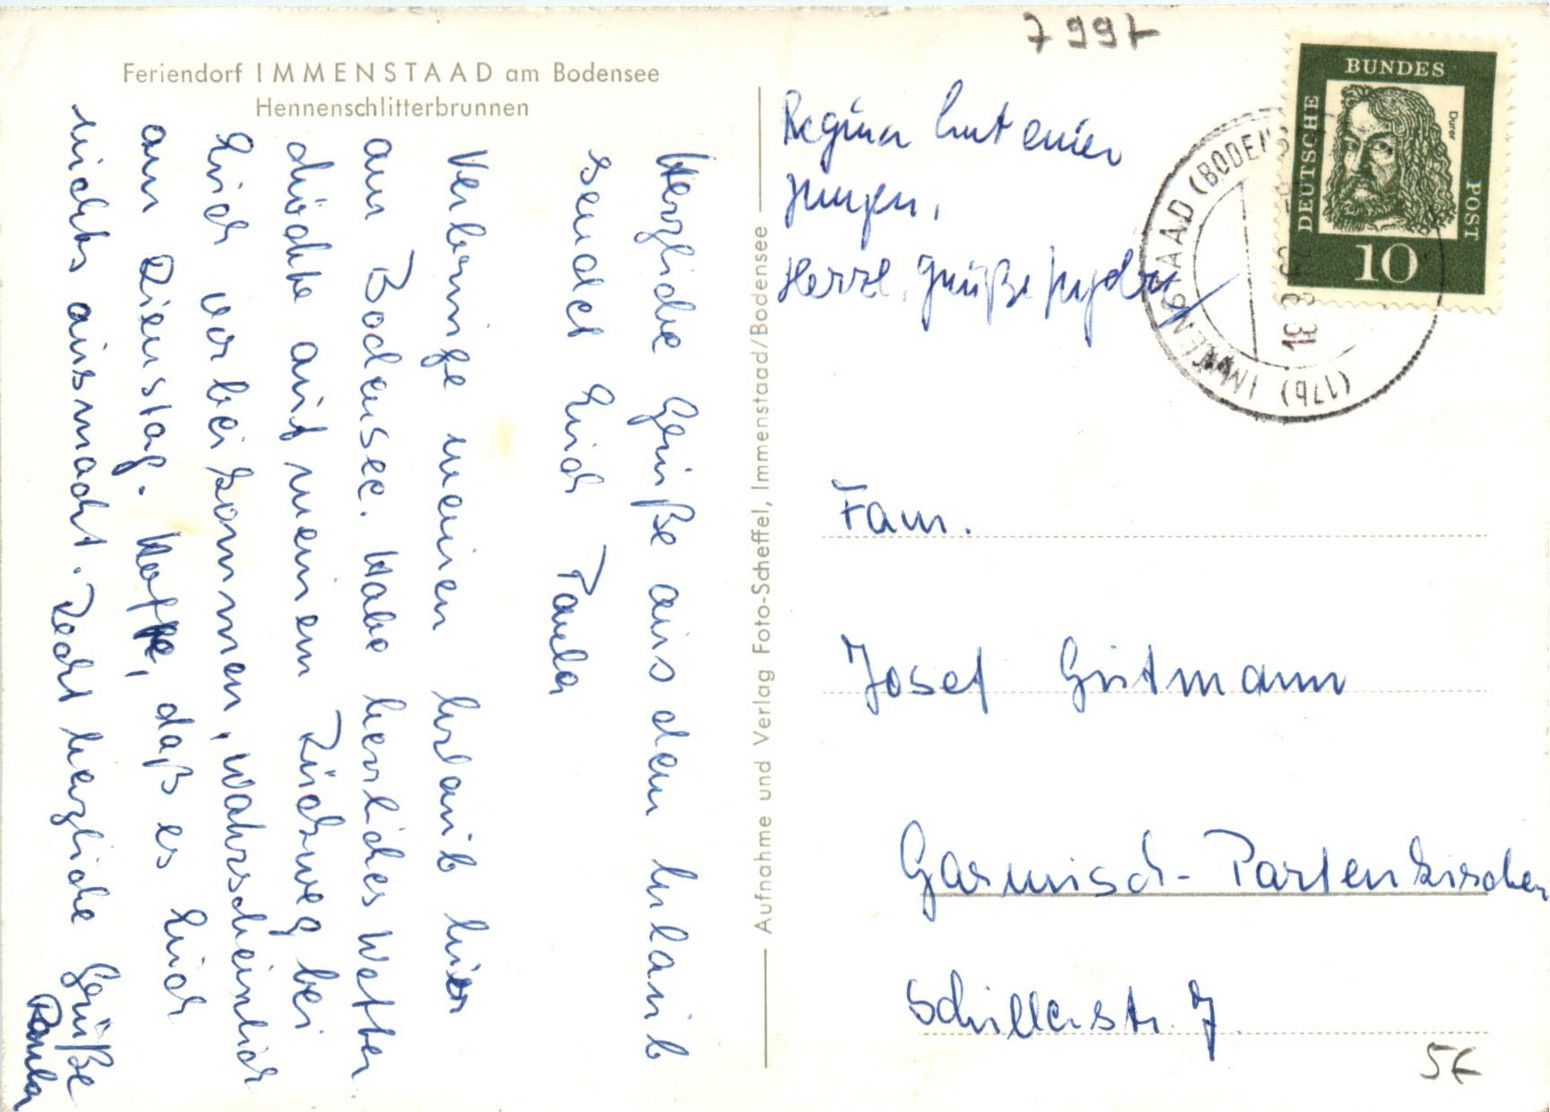 7997
Feriendorf IMMENSTAAD am Bodensee
Hennenschlitterbrunnen
Herzliche Grüße aus dem Urlaub
sendet Euch Paula
Verbringe meinen Urlaub hier
am Bodensee. Habe herrliches Wetter.
möchte auf meinem Rückweg bei
Euch vorbei kommen, wahrscheinlich
am Dienstag. Hoffe, daß es Euch
nichts ausmacht. Recht herzliche Grüße
Paula
Aufnahme und Verlag Foto-Scheffel, Immenstaad/Bodensee
Regina hat einen
Jungen,
Herzl. Grüße
DEUTSCHE BUNDES POST
Dürer
10
IMMENSTAAD (BODENSEE)
Fam.
Josef Gutmann
Garmisch-Partenkirchen
Schillerstr. 7.
5€